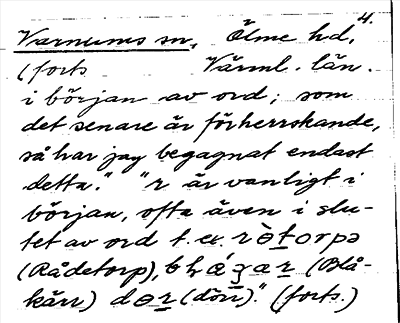 4.
Varnums sn, Ölme hd,
(forts Värml. län.
i början av ord; som
det senare är förherrskande,
så har jag begagnat endast
detta." "r är vanligt i
början, ofta även i slu-
tet av ord t. ex. rὲtorpə
(Rådetorp), (Blå-
kärr) dɵr (dörr)." (forts.)